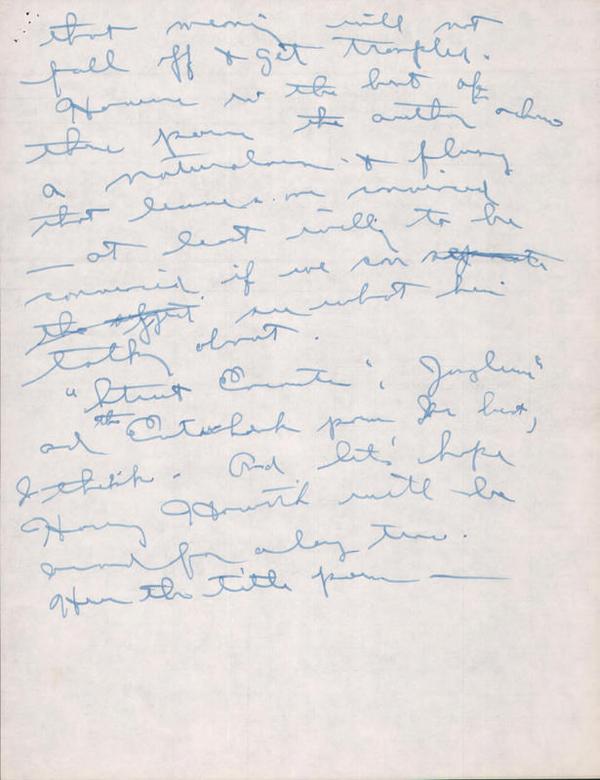 that meaning will not
fall off & get trampled.
However in the best of
these poems ~~the~~ the author achieves
a naturalness & fluency
that leaves me convinced
— at least willing to be
convinced if we can ~~separate~~
~~the effect~~ see what he's
talking about.
"Street Encounter", Juglers"
and the poem are best,
I think. And let's hope
Harvey will be
around for a long time.
Here the title poem —